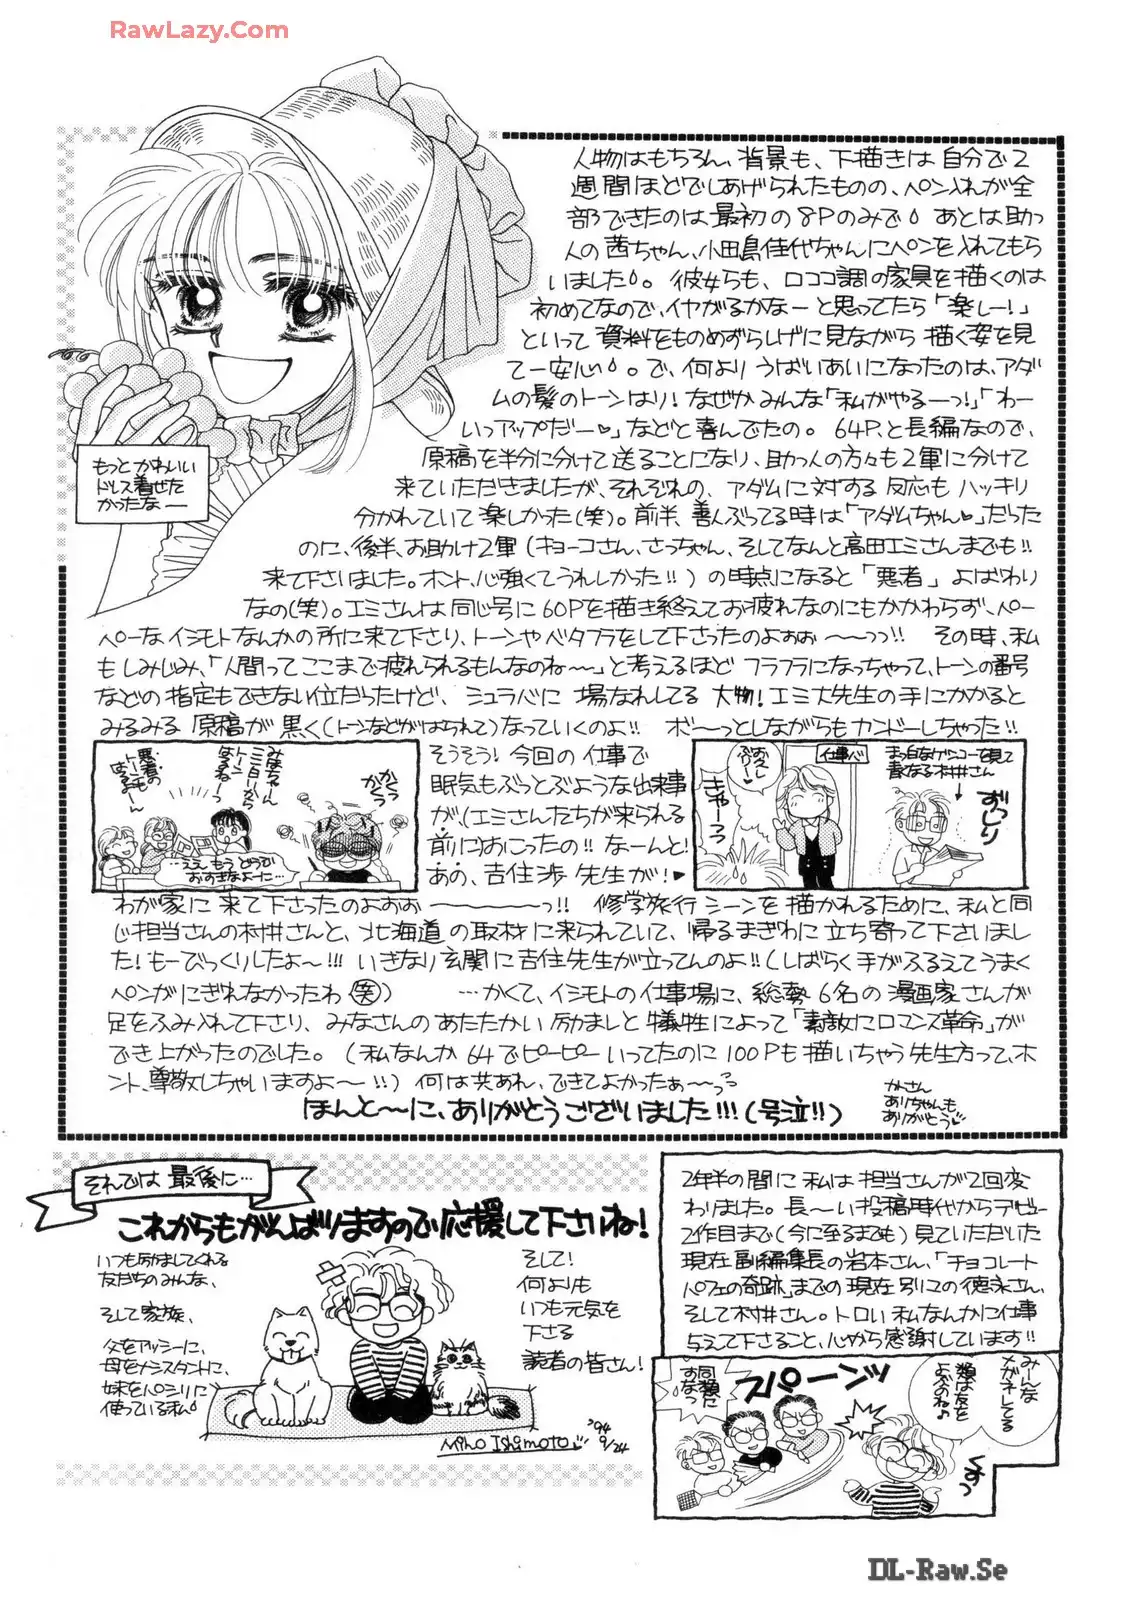 RawLazy.Com
人物はもちろん、背景も、下描きは自分で2
週間ほどでしあげられたものの、ペン入れが全
部できたのは最初の8Pのみで あとは助っ
人の茜ちゃん、小田島佳代ちゃんにペンを入れてもら
いました。彼女らも、ロココ調の家具を描くのは
初めてなので、イヤがるかなーと思ってたら「楽しー!」
といって資料をものめずらしげに見ながら描く姿を見
て一安心。で、何よりうばいあいになったのは、アダ
ムの髪のトーンはり!なぜかみんな「私がやるーっ!」「わー
いっアップだー♥」などと喜んでたの。64P、と長編なので、
原稿を半分に分けて送ることになり、助っ人の方々も2軍に分けて
来ていただきましたが、それぞれの、アダムに対する反応もハッキリ
分かれていて楽しかった(笑)。前半、善人ぶってる時は「アダムちゃん♥」だった
のに、後半、お助け2軍(キョーコさん、さっちゃん、そしてなんと高田エミさんまでも!!
来て下さいました。ホント、心強くてうれしかった!!)の時点になると「悪者」よばわり
なの(笑)。エミさんは同じ号に60Pを描き終えてお疲れなのにもかかわらず、ペー
ペーなイシモトなんかの所に来て下さり、トーンやベタフラをして下さったのよぉぉ〜〜っっ!! その時、私
もしみじみ、「人間ってここまで疲れられるもんなのね〜〜」と考えるほどフラフラになっちゃって、トーンの番号
などの指定もできない位だったけど、シュラバに場なれしてる大物!エミ大先生の手にかかると
みるみる原稿が黒く(トーンなどがはられて)なっていくのよ!! ボ〜〜っとしながらもカンドーしちゃった!!
そうそう!今回の仕事で
眠気もぶっとぶような出来事
が、(エミさんたちが来られる
前に)おこったの!!なーんと!
あの、吉住渉先生が!♥
わが家に来て下さったのよぉぉ〜〜〜〜っ!! 修学旅行シーンを描かれるために、私と同
じ担当さんの村井さんと、北海道の取材に来られていて、帰るまぎわに立ち寄って下さいまし
た!もーびっくりしたよ〜!!!いきなり玄関に吉住先生が立ってんのよ!!(しばらく手がふるえてうまく
ペンがにぎれなかったわ(笑)) …かくて、イシモトの仕事場に、総勢6名の漫画家さんが
足をふみ入れて下さり、みなさんのあたたかい励ましと犠牲によって「素敵にロマンス革命」が
でき上がったのでした。(私なんか64でピーピーいってたのに100Pも描いちゃう先生方って、ホ
ント、尊敬しちゃいますよ〜!!)何は共あれ、できてよかったぁ〜っ
ほんと〜〜に、ありがとうございました!!!(号泣!!)
かーさん
ありちゃんも
ありがとう
もっとかわいい
ドレス着せた
かったなー
悪者の
ト〜ン
みほちゃん
ここ白いから
トーン
はるねーっ
かくっ
かくっ
…ええ もう どうで
おすきなよーに…
お久し
ぶり♥
きゃーっっ
仕事バ
まっ白なゲンコーを見て
青くなる村井さん
ずっしり
それでは 最後に…
これからもがんばりますので応援して下さいね!
いつも励ましてくれる
友だちのみんな、
そして家族、
父をアッシーに、
母をアシスタントに、
妹をパシリに
使っている私
そして!
何よりも
いつも元気を
下さる
読者の皆さん!
Miho Ishimoto
'94 9/24
2年半の間に私は担当さんが2回変
わりました。長〜い投稿時代からデビュー
2作目まで(今に至るまでも)見ていただいた
現在副編集長の岩本さん、「チョコレート
パフェの奇跡」までの現在別コの徳永さん、
そして村井さん。トロい私なんかに仕事
与えて下さること、心から感謝しています!!
みーんな
メガネしてる
類は友を
よぶのね♪
スパーンッ
同類に
すなっ
くすっ
DL-Raw.Se